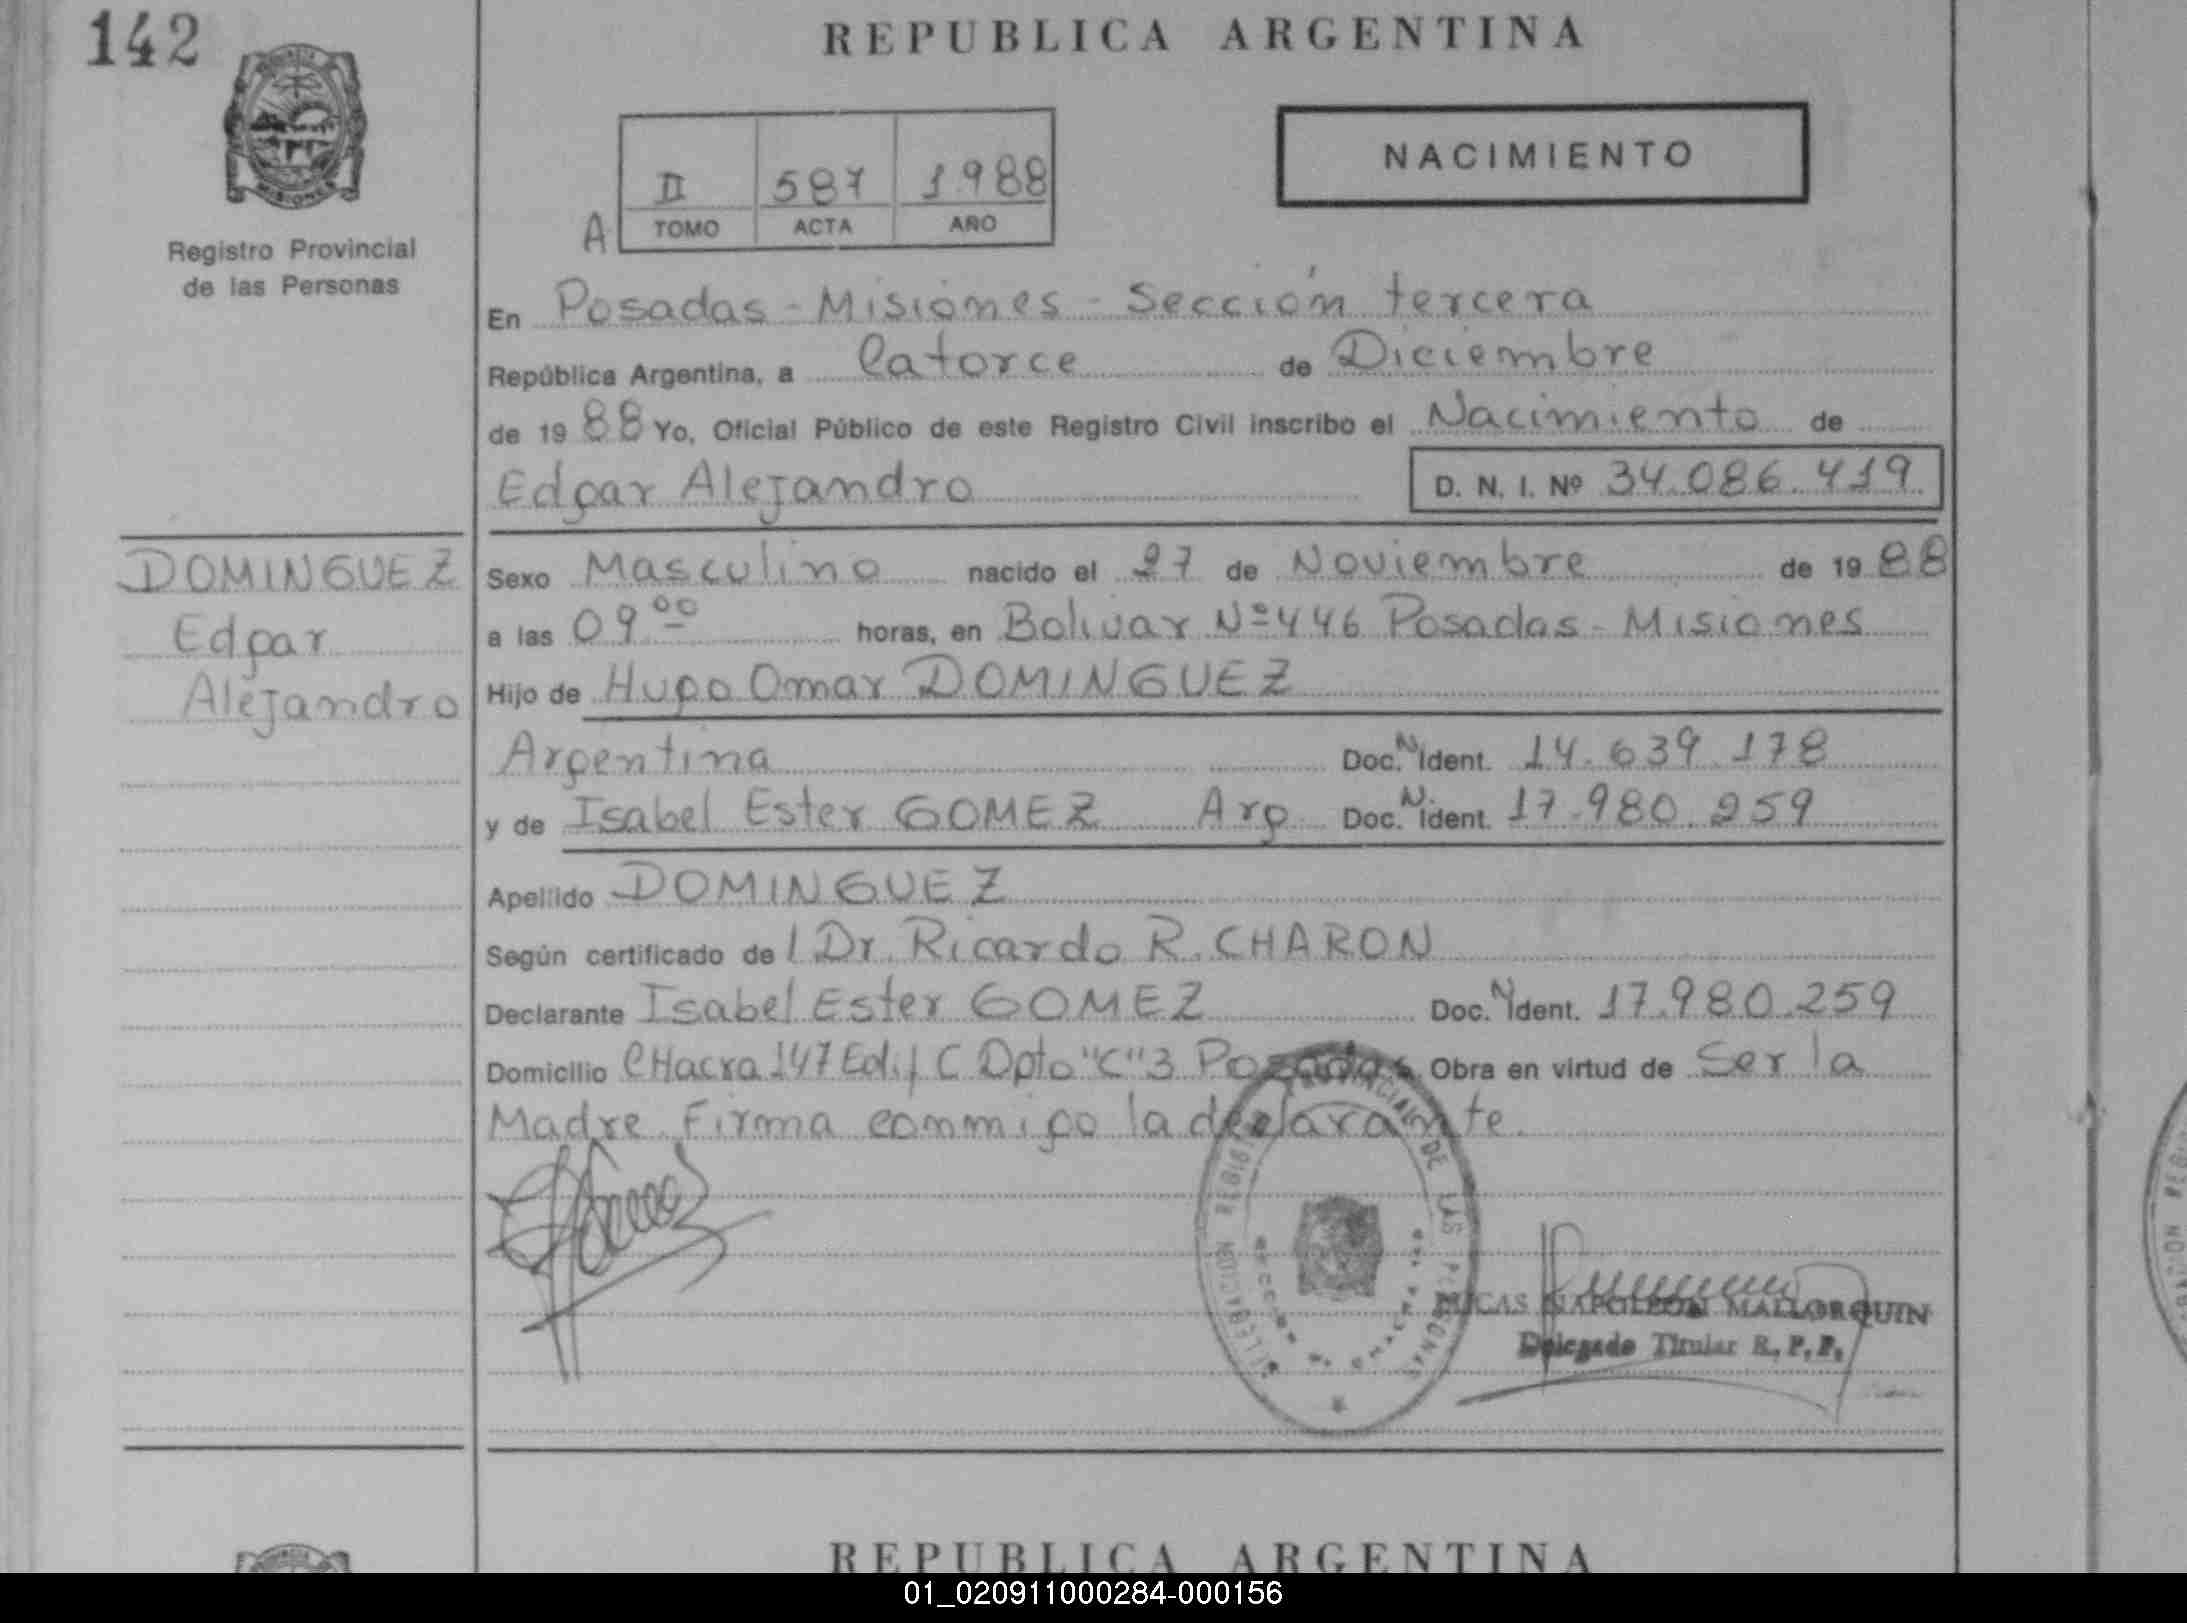 142
REPUBLICA ARGENTINA
NACIMIENTO
II 587 1988
A TOMO ACTA AÑO
MISIONES
Registro Provincial
de las Personas
En Posadas - Misiones - Sección tercera
República Argentina, a Catorce de Diciembre
de 1988 Yo, Oficial Público de este Registro Civil inscribo el Nacimiento de
Edgar Alejandro D. N. I. Nº 34.086.419
DOMINGUEZ
Edgar
Alejandro
Sexo Masculino nacido el 27 de Noviembre de 1988
a las 09 00 horas, en Bolivar Nº 446 Posadas - Misiones
Hijo de Hugo Omar DOMINGUEZ
Argentina Doc. N Ident. 14.639.178
y de Isabel Ester GOMEZ Arg Doc. N. ident. 17.980.259
Apellido DOMINGUEZ
Según certificado de l Dr. Ricardo R. CHARON
Declarante Isabel Ester GOMEZ Doc. N Ident. 17.980.259
Domicilio CHacra 147 Edif C Dpto "C" 3 Posadas Obra en virtud de Ser la
Madre Firma conmigo la declarante.
LUCAS NAPOLEON MALLORQUIN
Delegado Titular R. P. P.
REPUBLICA ARGENTINA
01_020911000284-000156